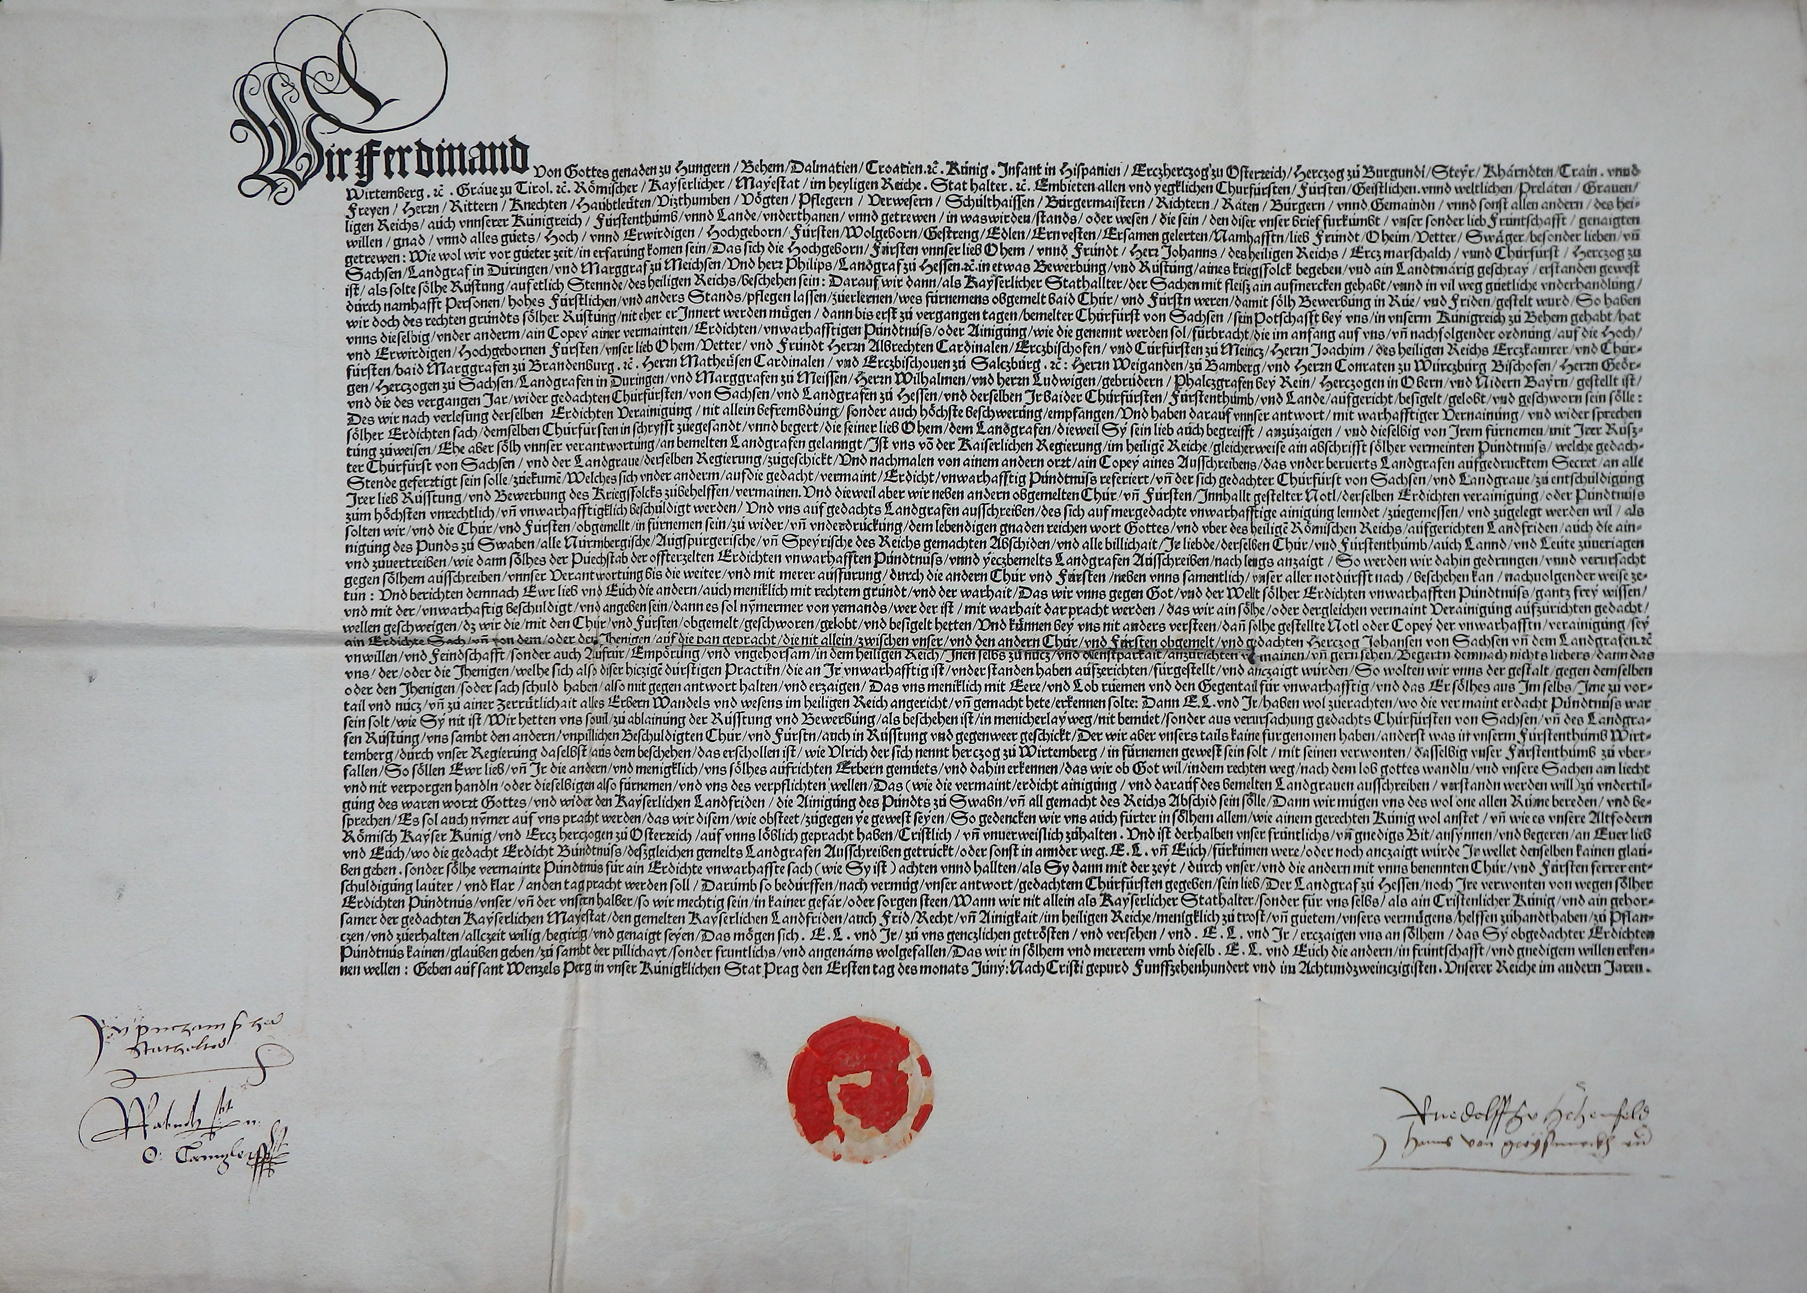 Wir Ferdinand Von Gottes genaden zu Hungern / Behem / Dalmatien / Croatien. ꝛc̃. Künig. Infant in Hispanien / Erczherczog zu Osterreich / Herczog zu Burgundi / Steyr / Kharndten / Crain. vnnd
Wirtemberg. ꝛc̃. Graue zu Tirol. ꝛc̃. Römischer / Kayserlicher / Mayestat / im heyligen Reiche. Stathalter. ꝛc̃. Embieten allen vnd yegklichen Churfürsten / Fürsten / Geistlichen. vnnd weltlichen / Prelaten / Grauen /
Freyen / Herrn / Rittern / Knechten / Haubtleüten / Vizthumben / Vögten / Pflegern / Verwesern / Schulthaissen / Burgermaistern / Richtern / Räten / Burgern / vnnd. Gemainden / vnnd sonst allen andern / des hei-
ligen Reichs / auch vnnserer Künigreich / Fürstenthumb / vnnd Lande / vnderthanen / vnnd getrewen / in was wirden / stands / oder wesen / die sein / den diser vnser brief fürkumbt / vnser sonder lieb Fruntschafft / genaigten
willen / gnad / vnnd alles guets / Hoch / vnnd Erwirdigen / Hochgeborn / Fürsten / Wolgeborn / Gestreng / Edlen / Ernvesten / Ersamen gelerten / Namhafftn / lieb Fründt / Oheim / Vetter / Swäger / besonder lieben / vñ
getrewen : Wie wol wir vor gueter zeit / in erfarung komen sein / Das sich die Hochgeborn / Fürsten vnnser lieb Ohem / vnnd Fründt / Herr Johanns / des heiligen Reichs / Ercz marschalch / vnnd Churfürst / Herczog zu
Sachsen / Landgraf in Düringen / vnd Marggraf zu Meichsen / Vnd herr Philips / Landgraf zu Hessen. ꝛc̃. in etwas Bewerbung / vnd Rüstung / aines kriegsfolck begeben / vnd ain Landtmärig geschray / erstanden gewest
ist / als solte sölhe Rüstung / auf etlich Stennde / des heiligen Reichs / beschehen sein : Darauf wir dann / als Kayserlicher Stathallter / der Sachen mit fleiß ain aufmercken gehabt / vnnd in vil weg güetliche vnderhandlung /
durch namhafft Personen / hohes Fürstlichen / vnd anders Stands / pflegen lassen / zuerlernen / wes fürnemens obgemelt baid Chur / vnd Fürsten weren / damit sölh Bewerbung in Rüe / vnd Friden / gestelt wurd / So haben
wir doch des rechten gründts sölher Rüstung / nit eher erInnert werden mügen / dann bis erst zu vergangen tagen / bemelter Churfürst von Sachsen / sein Potschafft bey vns / in vnserm Künigreich zu Behem gehabt / hat
vnns dieselbig / vnder anderm / ain Copey ainer vermainten / Erdichten / vnwarhafftigen Pündtnuss / oder Ainigung / wie die genennt werden sol / fürbracht / die im anfang auf vns / vñ nachfolgender ordnung / auf die Hoch /
vnd Erwirdigen / Hochgebornen Fürsten / vnser lieb Ohem / Vetter / vnd Fründt Herrn Albrechten Cardinalen / Erczbischofen / vnd Curfürsten zu Meincz / Herrn Joachim / des heiligen Reichs Erczkamrer / vnd Chur-
fürsten / baid Marggrafen zu Brandenburg. ꝛc̃. Herrn Matheusen Cardinalen / vnd Erczbischouen zu Salczburg. ꝛc̃: Herrn Weiganden / zu Bamberg / vnd Herrn Conraten zu Würczburg Bischofen / Herrn Geör-
gen / Herczogen zu Sachsen / Landgrafen in Duringen / vnd Marggrafen zu Meissen / Herrn Wilhalmen / vnd herrn Ludwigen / gebrüdern / Phalczgrafen bey Rein / Herczogen in Obern / vnd Nidern Bayrn / gestellt ist /
vnd die des vergangen Jar / wider gedachten Churfürsten / von Sachsen / vnd Landgrafen zu Hessen / vnd derselben Jr baider Churfürsten / Fürstenthumb / vnd Lande / aufgericht / besigelt / gelobt / vnd geschworn sein sölle :
Des wir nach verlesung derselben Erdichten Verainigung / nit allein befrembdung / sonder auch höchste beschwerung / empfangen / Vnd haben darauf vnnser antwort / mit warhafftiger Vernainung / vnd wider sprechen
sölher Erdichten sach / demselben Churfürsten in schryfft zuegesandt / vnnd begert / die seiner lieb Ohem / dem Landgrafen / dieweil Sy sein lieb auch begreifft / anzuzaigen / vnd dieselbig von Irem fürnemen / mit Irer Rüs-
tung zuweisen / Ehe aber sölh vnnser verantwortung / an bemelten Landgrafen gelanngt / Jst vns võ der Kaiserlichen Regierung / im heiligẽ Reiche / gleicherweise ain abschrifft sölher vermeinten Pündtnuss / welche gedach-
ter Churfürst von Sachsen / vnd der Landgraue / derselben Regierung / zugeschickt / Vnd nachmalen von ainem andern orzt / ain Copey aines Ausschreibens / das vnder beruerts Landgrafen aufgedrucktem Secret / an alle
Stende gefertzigt sein solle / zuekumẽ / Welches sich vnder anderm / auf die gedacht / vermaint / Erdicht / vnwarhafftig Pündtnuss referiert / vñ der sich gedachter Churfürst von Sachsen / vnd Landgraue / zu entschuldigung
Irer lieb Rüsstung / vnd Bewerbung des Kriegsfolcks zubehelffen / vermainen. Vnd dieweil aber wir neben andern obgemelten Chur / vñ Fürsten / Innhallt gestelter Notl / derselben Erdichten verainigung / oder Pündtnuss
zum höchsten vnrechtlich / vñ vnwarhafftigklich beschuldigt werden / Vnd vns auf gedachts Landgrafen ausschreiben / des sich auf mergedachte vnwarhafftige ainigung lenndet / zuegemessen / vnd zugelegt werden wil / als
solten wir / vnd die Chur / vnd Fürsten / obgemellt / in fürnemen sein / zu wider / vñ vnderdruckung / dem lebendigen gnaden reichen wort Gottes / vnd vber des heiligẽ Römischen Reichs / aufgerichten Landfriden / auch die ain-
nigung des Punds zu Swaben / alle Nürmbergische / Augspurgerische / vñ Speyrische des Reichs gemachten Abschiden / vnd alle billichait / Jr liebde / derselben Chur / vnd Fürstenthumb / auch Lannd / vnd Leute zuueriagen
vnd zuuertreiben / wie dann sölhes der Puechstab der offterzelten Erdichten vnwarhafften Pündtnuss / vnnd yeczbemelts Landgrafen Ausschreiben / nach lengs anzaigt / So werden wir dahin gedrungen / vnnd verursacht
gegen sölhem ausschreiben / vnnser Verantwortung bis die weiter / vnd mit merer ausfürung / durch die andern Chur vnd Fürsten / neben vnns samentlich / vnser aller notdurfft nach / beschehen kan / nachuolgender weise ze-
tun : Vnd berichten demnach Ewr lieb vnd Euch die andern / auch meniklich mit rechtem gründt / vnd der warhait / Das wir vnns gegen Got / vnd der Wellt sölher Erdichten vnwarhafften Pündtnuss / gantz frey wissen /
vnd mit der / vnwarhaftig beschuldigt / vnd angeben sein / dann es sol nymermer von yemands / wer der ist / mit warhait dar pracht werden / das wir ain sölhe / oder dergleichen vermaint Verainigung aufzurichten gedacht /
wellen geschweigen / dz wir die / mit den Chur / vnd Fürsten / obgemelt / geschworen / gelobt / vnd besigelt hetten / Vnd künnen bey vns nit anders versteen / dañ solhe gestellte Notl oder Copey der vnwarhafftn / verainigung / sey
ain Erdichte Sach / vñ von dem / oder den Jhenigen / auf die pan gepracht / die nit allein / zwischen vnser / vnd den andern Chur / vnd Fürsten obgemelt / vnd gedachten Herczog Johansen von Sachsen vñ dem Landgrafen. ꝛc̃
vnwillen / vnd Feindschafft / sonder auch Aufrur / Empörung / vnd vngehorsam / in dem heiligen Reich / Jnen selbs zu nucz / vnd dienstparkait / anzurichten vermainen / vñ gern sehen / Begern demnach nichts liebers / dann das
vns / der / oder die Jhenigen / welhe sich also diser hiczigẽ dürstigen Practikn / die an Jr vnwarhafftig ist / vnderstanden haben aufzerichten / fürgestellt / vnd anczaigt würden / So wolten wir vnns der gestalt / gegen demselben
oder den Jhenigen / so der sach schuld haben / also mit gegen antwort halten / vnd erzaigen / Das vns meniklich mit Eere / vnd Lob rüemen vnd den Gegentail für vnwarhafftig / vnd das Er sölhes aus Im selbs / Jme zu vor-
tail vnd nucz / vñ zu ainer Zerrütlichait alles Erbern Wandels vnd wesens im heiligen Reich angericht / vñ gemacht hete / erkennen solte : Dann E. L. vnd Jr / haben wol zuerachten / wo die vermaint erdacht Pündtnuss war
sein solt / wie Sy nit ist / Wir hetten vns souil / zu ablainung der Rüsstung vnd Bewerbung / als beschehen ist / in menicherlay weg / nit bemüet / sonder aus verursachung gedachts Churfürsten von Sachsen / vñ des Landgra-
fen Rüstung / vns sambt den andern / vnpillichen Beschuldigten Chur / vnd Fürstn / auch in Rüsstung vnd gegenweer geschickt / Der wir aber vnsers tails kaine fürgenomen haben / anderst was in vnserm Fürstenthumb Wirt-
temberg / durch vnser Regierung daselbst aus dem beschehen / das erschollen ist / wie Vlrich der sich nennt herczog zu Wirtemberg / in fürnemen gewest sein solt / mit seinen verwonten / dasselbig vnser Fürstenthumb zu vber-
fallen / So söllen Ewr lieb / vñ Jr die andern / vnd menigklich / vns sölhes aufrichten Erbern gemüets / vnd dahin erkennen / das wir ob Got wil / in dem rechten weg / nach dem lob gottes wandln / vnd vnsere Sachen am liecht
vnd nit verporgen handln / oder dieselbigen also fürnemen / vnd vns des verpflichten wellen / Das (wie die vermaint / erdicht ainigung / vnd darauf des bemelten Landgrauen ausschreiben / verstandn werden will) zu vndertil-
gung des waren worzt Gottes / vnd wider den Kayserlichen Landfriden / die Ainigung des Pündts zu Swabn / vñ all gemacht des Reichs Abschid sein sölle / Dann wir mügen vns des wol one allen Rume bereden / vnd be-
sprechen / Es sol auch nymer auf vns pracht werden / das wir disem / wie obsteet / zugegen ye gewest seyen / So gedencken wir vns auch fürter in sölhem allem / wie ainem gerechten Künig wol anstet / vñ wie es vnsere Altfodern
Römisch Kayser Künig / vnd Ercz herczogen zu Osterreich / auf vnns löblich gepracht haben / Cristlich / vñ vnuerweislich zuhalten. Vnd ist derhalben vnser früntlichs / vñ gnedigs Bit / ansynnen / vnd begeren / an Euer lieb
vnd Euch / wo die gedacht Erdicht Bündtnuss / deszgleichen gemelts Landgrafen Ausschreiben getruckt / oder sonst in annder weg. E. L. vñ Euch / fürkumen were / oder noch anczaigt würde Jr wellet denselben kainen glau-
ben geben. sonder sölhe vermainte Pündtnus für ain Erdichte vnwarhaffte sach (wie Sy ist) achten vnnd hallten / als Sy dann mit der zeyt / durch vnser / vnd die andern mit vnns benennten Chur / vnd Fürsten ferrer ent-
schuldigung lauter / vnd klar / an den tag pracht werden soll / Darumb so bedürffen / nach vermüg / vnser antwort / gedachtem Churfürsten gegeben / sein lieb / Der Landgraf zu Hessen / noch Jre verwonten von wegen sölher
Erdichten Pündtnus / vnser / vñ der vnsern halber / so wir mechtig sein / in kainer gefar / oder sorgen steen / Wann wir nit allein als Kayserlicher Stathalter / sonder für vns selbs / als ain Cristenlicher Künig / vnd ain gehor-
samer der gedachten Kayserlichen Mayestat / den gemelten Kayserlichen Landfriden / auch Frid / Recht / vñ Ainigkait / im heiligen Reiche / menigklich zu trost / vñ guetem / vnsers vermügens / helffen zuhandthaben / zu Pflan-
czen / vnd zuerhalten / allczeit wilig / begirig / vnd genaigt seyen / Das mögen sich. E. L. vnd Jr / zu vns genczlichen getrösten / vnd versehen / vnd. E. L. vnd Jr / erczaigen vns an sölhem / das Sy obgedachter Erdichten
Pündtnus kainen / glauben geben / zu sambt der pillichayt / sonder fruntlichs / vnd angenäms wolgefallen / Das wir in sölhem vnd mererem vmb dieselb. E. L. vnd Euch die andern / in fruntschafft / vnd gnedigem willen erken-
nen wellen : Geben auf sant Wenzels Perg in vnser Künigklichen Stat Prag den Ersten tag des monats Juny : Nach Cristi gepurd Funffzehenhundert vnd im Achtundzweinczigisten. Vnserer Reiche im andern Jaren.
Stathalter
Canzler
Ruedolff v Hohenfeld
Hanns von